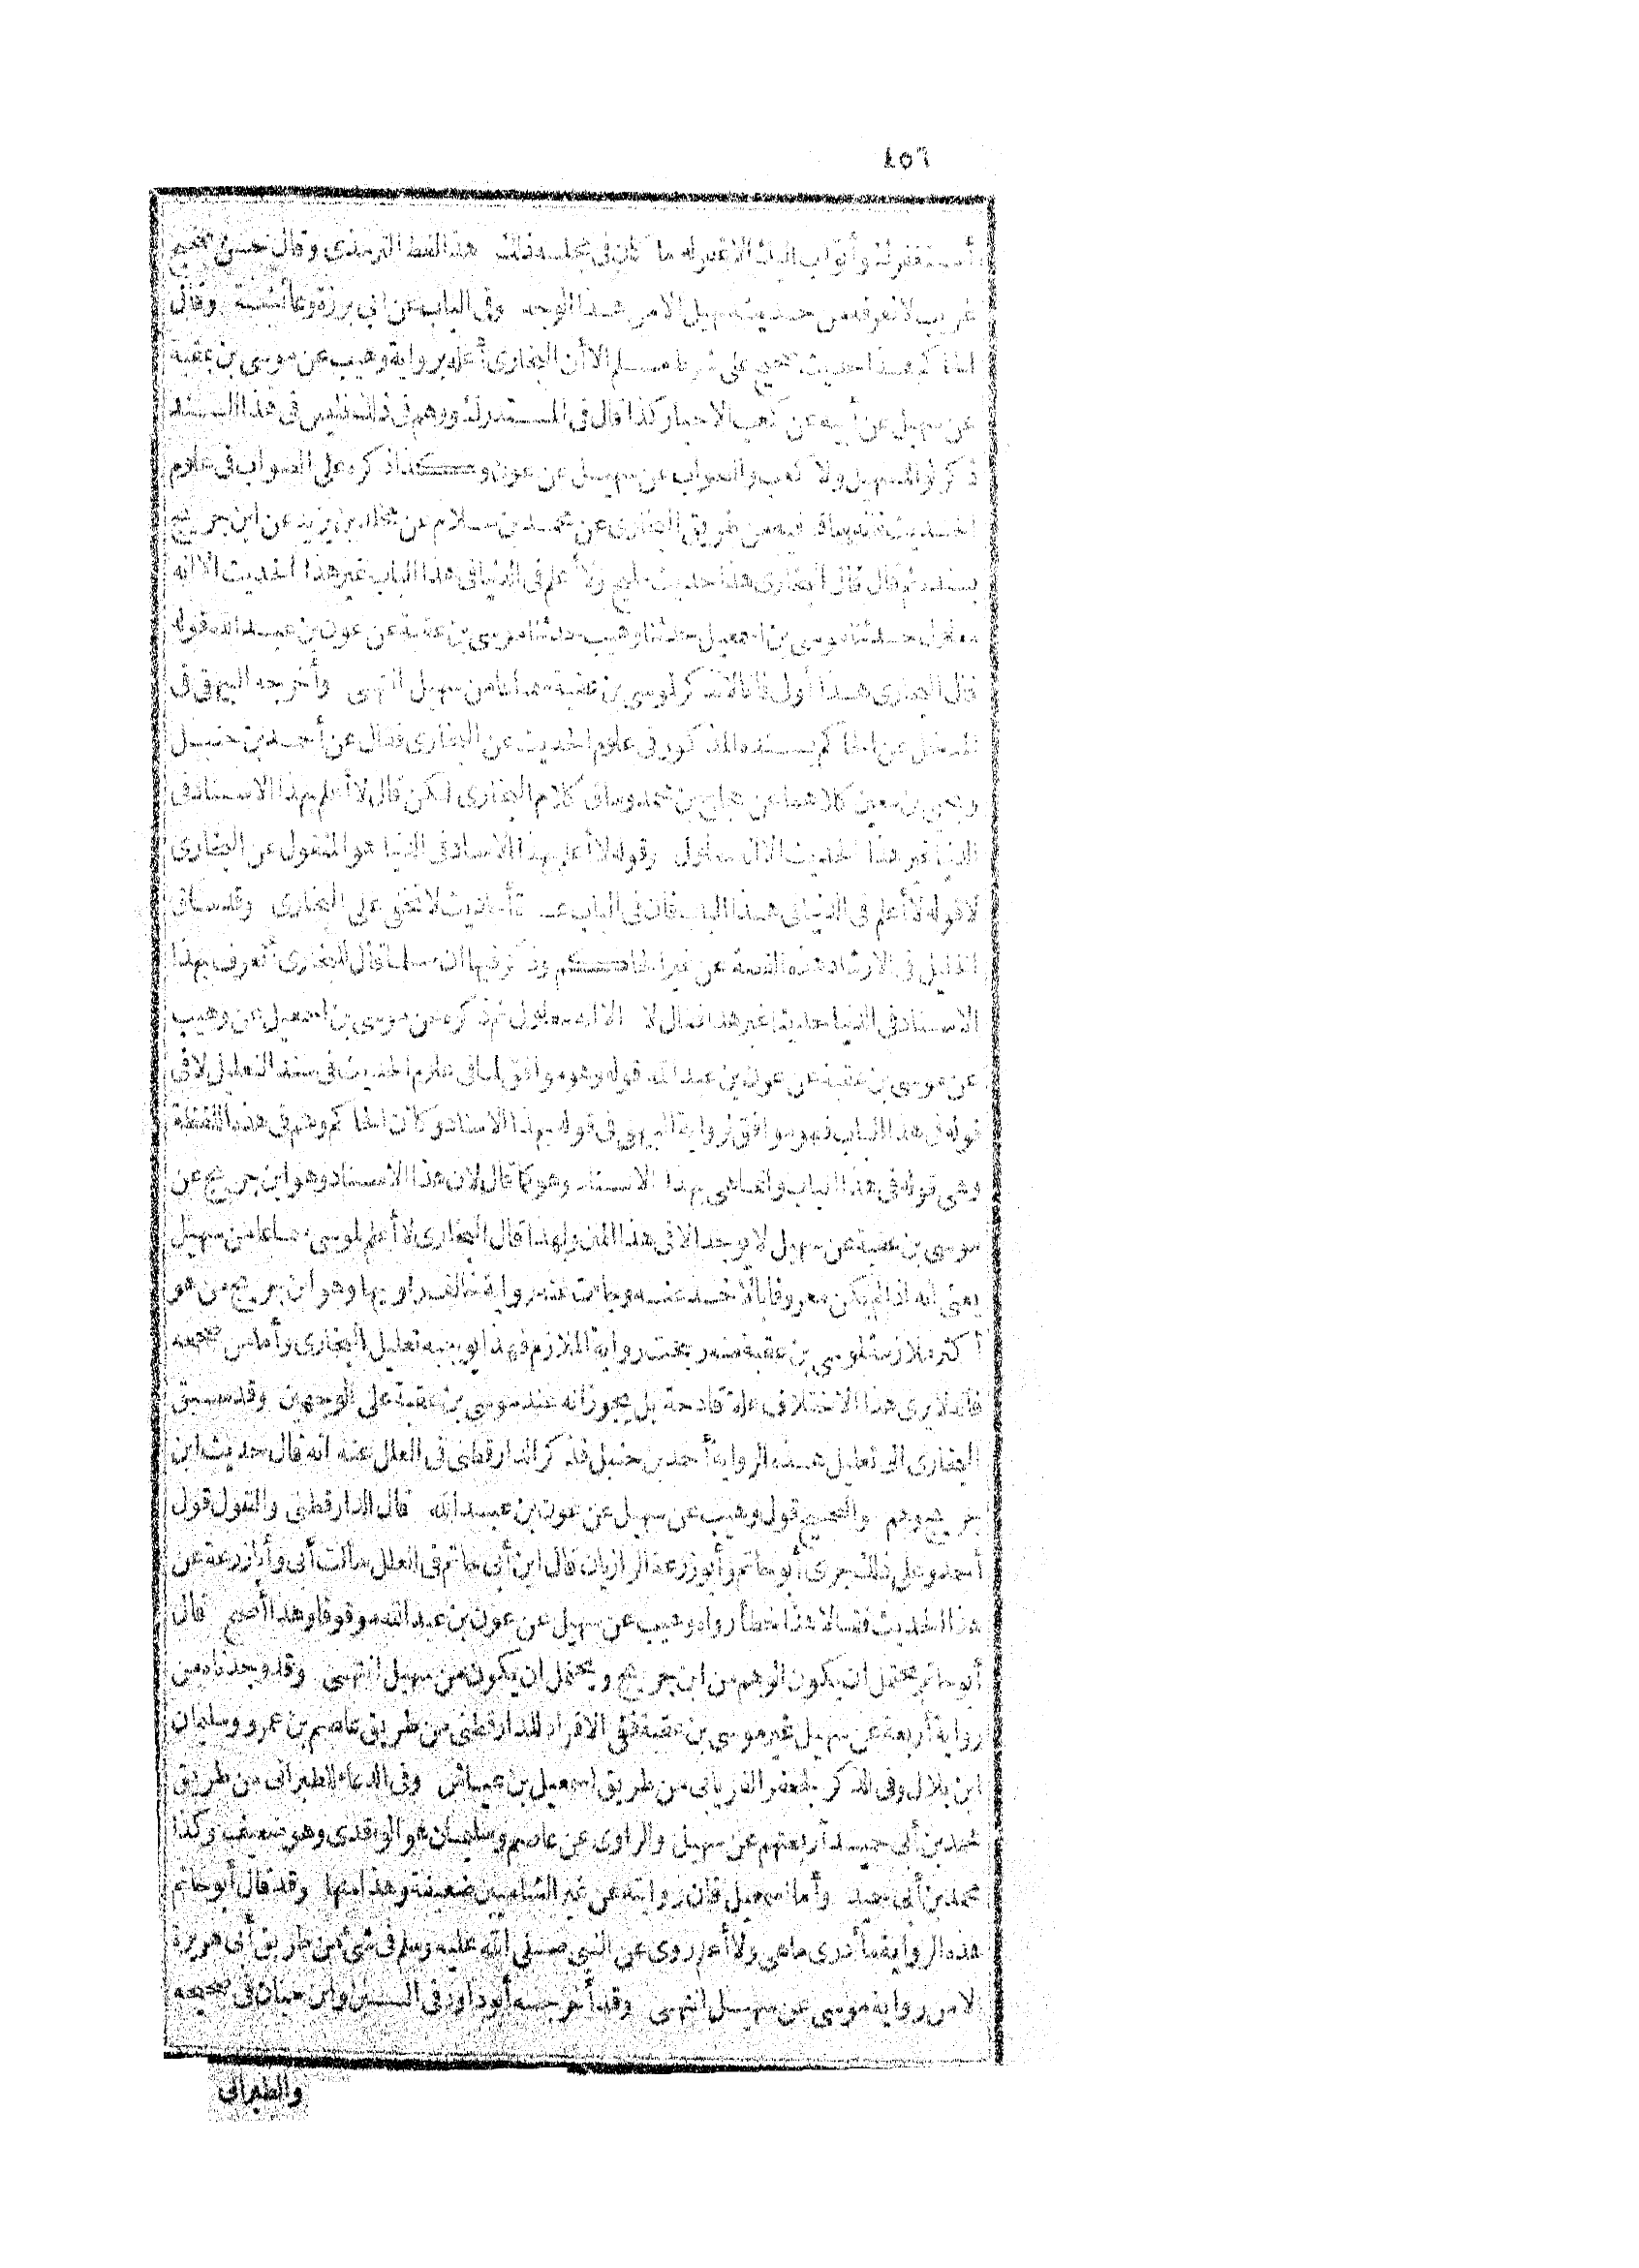 ٤٥٦
أستغفرك وأتوب اليك الا غفر له ما كان فى مجلسه ذلك هذا لفظ الترمذى وقال حسن صحيح
غريب لا نعرفه من حديث سهيل الا من هذا الوجه وفى الباب عن أبى برزة وعائشة وقال
الحاكم هذا حديث صحيح على شرط مسلم الا أن البخارى أعله برواية وهيب عن موسى بن عقبة
عن سهيل عن أبيه عن كعب الاحبار كذا قال فى المستدرك ووهم فى ذلك فليس فى هذا السند
ذكر لوالد سهيل ولا كعب والصواب عن سهيل عن عون وكذا ذكره على الصواب فى علوم
الحديث فانه ساقه فيه من طريق البخارى عن محمد بن سلام عن مخلد بن يزيد عن ابن جريج
بسنده ثم قال قال البخارى هذا حديث مليح ولا أعلم فى الدنيا فى هذا الباب غير هذا الحديث الا انه
معلول حدثنا موسى بن اسمعيل حدثنا وهيب حدثنا موسى بن عقبة عن عون بن عبد الله قوله
قال البخارى هذا أولى فانا لا نذكر لموسى بن عقبة سماعا من سهيل انتهى وأخرجه البيهقى فى
المدخل عن الحاكم بسنده المذكور فى علوم الحديث عن البخارى فقال عن أحمد بن حنبل
ويحيى بن معين كلاهما عن حجاج بن محمد وساق كلام البخارى لكن قال لا أعلم بهذا الاسناد فى
الدنيا غير هذا الحديث الا انه معلول وقوله لا أعلم بهذا الاسناد فى الدنيا هو المنقول عن البخارى
لا قوله لا أعلم فى الدنيا فى هذا الباب فان فى الباب عدة أحاديث لا تخفى على البخارى وقد ساق
الخليلى فى الارشاد هذه القصة عن غير الحاكم وذكر فيها ان مسلما قال للبخارى أتعرف بهذا
الاسناد فى الدنيا حديثا غير هذا فقال لا الا انه معلول ثم ذكره عن موسى بن اسمعيل عن وهيب
عن موسى بن عقبة عن عون بن عبد الله قوله وهو موافق لما فى علوم الحديث فى سند التعليل لا فى
قوله فى هذا الباب فهو موافق لرواية البيهقى فى قوله بهذا الاسناد وكأن الحاكم وهم فى هذه اللفظة
وهى قوله فى هذا الباب وانما هى بهذا الاسناد وهو كما قال لان هذا الاسناد وهو ابن جريج عن
موسى بن عقبة عن سهيل لا يوجد الا فى هذا المتن ولهذا قال البخارى لا أعلم لموسى سماعا من سهيل
يعنى انه اذا لم يكن معروفا بالاخذ عنه وجاءت عنه رواية خالف راويها وهو ابن جريج من هو
أكثر ملازمة لموسى بن عقبة منه رجحت رواية الملازم فهذا يوجبه تعليل البخارى وأما من صححه
فانه لا يرى هذا الاختلاف علة قادحة بل يجوز انه عند موسى بن عقبة على الوجهين وقد سبق
البخارى الى تعليل هذه الرواية أحمد بن حنبل فذكر الدارقطنى فى العلل عنه انه قال حديث ابن
جريج وهم والصحيح قول وهيب عن سهيل عن عون بن عبد الله قال الدارقطنى والقول قول
أحمد وعلى ذلك جرى أبو حاتم وأبو زرعة الرازيان قال ابن أبى حاتم فى العلل سألت أبى وأبا زرعة عن
هذا الحديث فقالا هذا خطأ رواه وهيب عن سهيل عن عون بن عبد الله موقوفا وهذا أصح قال
أبو حاتم يحتمل ان يكون الوهم من ابن جريج ويحتمل ان يكون من سهيل انتهى وقد وجدناه من
رواية أربعة عن سهيل غير موسى بن عقبة ففى الافراد للدارقطنى من طريق عاصم بن عمرو وسليمان
ابن بلال وفى الذكر لجعفر الفريابى من طريق اسمعيل بن عياش وفى الدعاء للطبرانى من طريق
محمد بن أبى حميد أربعتهم عن سهيل والراوى عن عاصم وسليمان هو الواقدى وهو ضعيف وكذا
محمد بن أبى حميد وأما اسمعيل فان روايته عن غير الشاميين ضعيفة وهذا منها وقد قال أبو حاتم
هذه الرواية ما أدرى ما هى ولا أعلم روى عن النبى صلى الله عليه وسلم فى شئ من طريق أبى هريرة
الا من رواية موسى عن سهيل انتهى وقد أخرجه أبو داود فى السنن وابن حبان فى صحيحه
والطبرانى